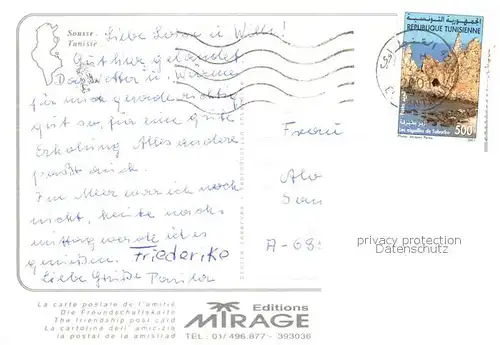 Sousse
Tunisie
Liebe Luise u Willi!
Gut hier gelandet
Das Wetter u. Wärme
für mich gerade richtig
gut so, für eine gute
Erholung Alles andere
passt auch.
Im Meer war ich noch
nicht, heute nach-
mittag werde ich es
genießen. Friederike
Liebe Grüße
La carte postale de l'amitié
Die Freundschaftskarte
The friendship post card
La cartoline dell' amicizia
la postal de la amistad
Editions
MIRAGE
TEL: 01/496.877 - 393036
الجمهورية التونسية
REPUBLIQUE TUNISIENNE
Les aiguilles de Tabarka
500
Frau
A-68
privacy protection
Datenschutz